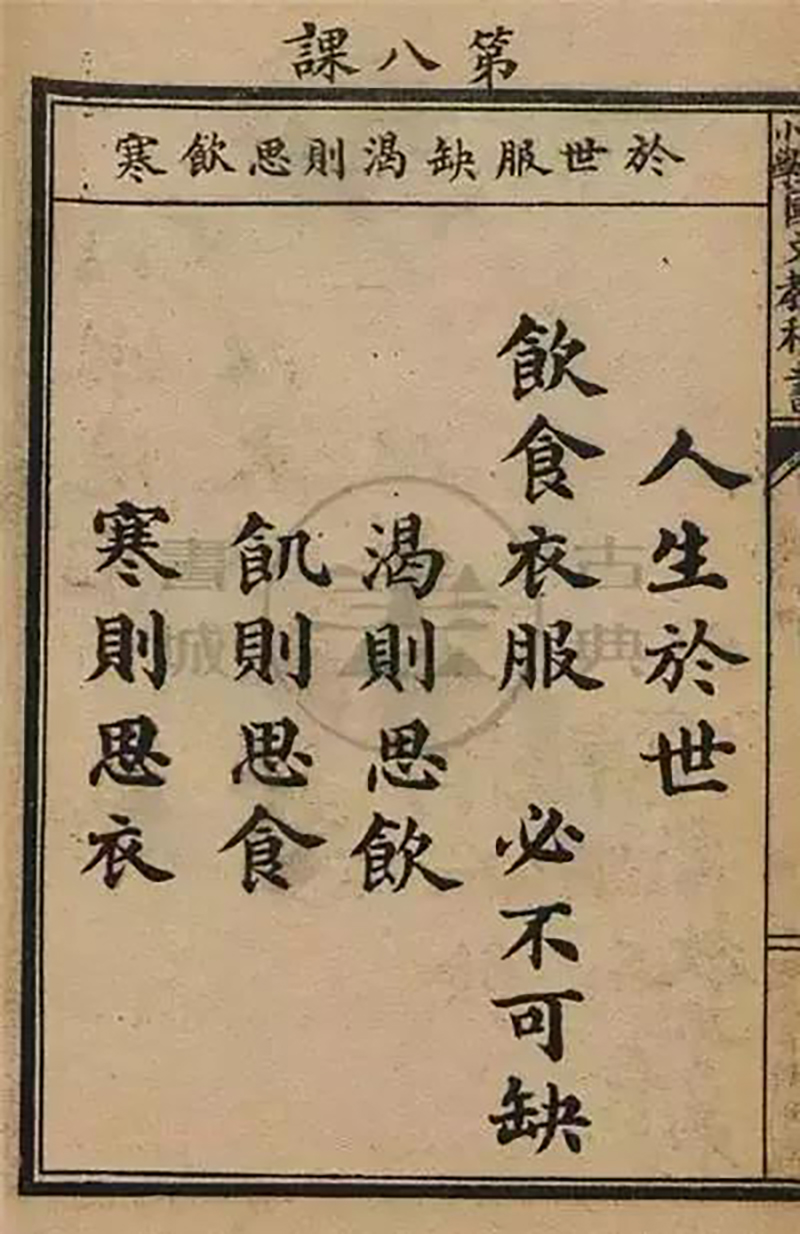 第八課
於世服缺渴則思飲寒
人生於世
飲食衣服 必不可缺
渴則思飲
飢則思食
寒則思衣
小學國文教科書
古典
書城